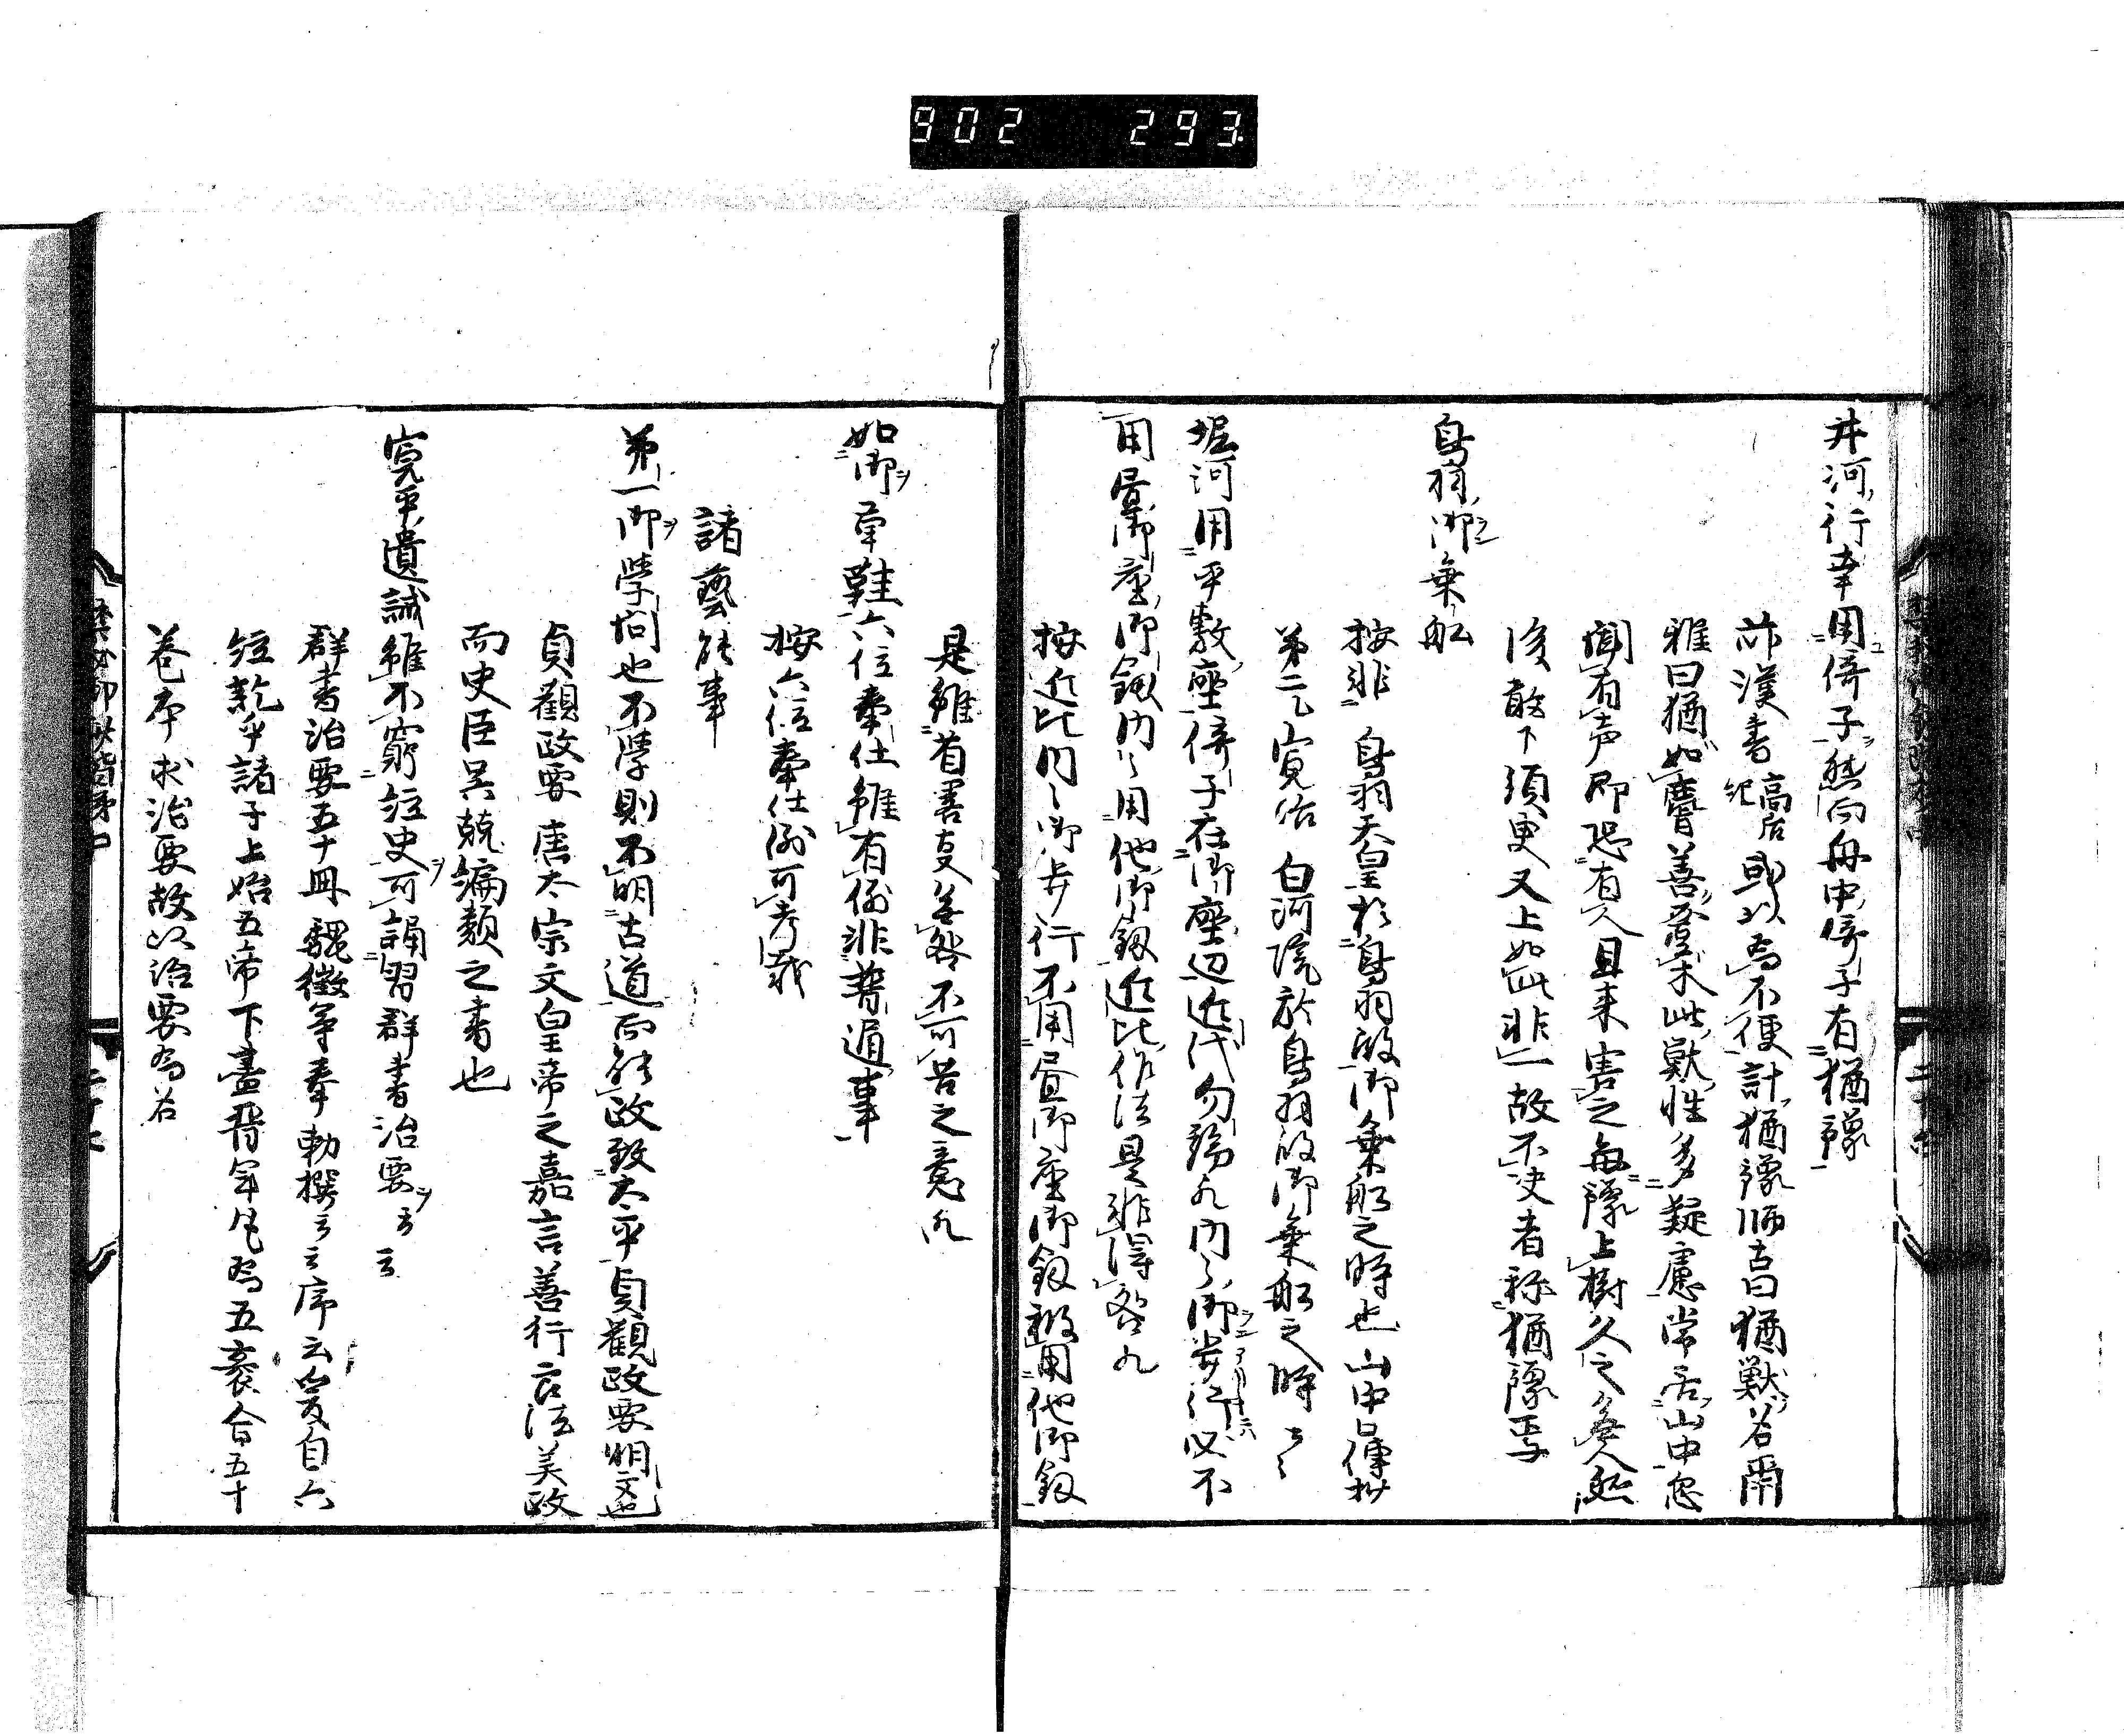 902 293
井河行幸用倚子然而舟中倚子有猶豫
前漢書高后紀或以為不便計猶豫師古曰猶獣名爾
雅曰猶如麑善登木此獣性多疑慮常居山中忽
聞有声即恐有人且来害之毎豫上樹久之無人然
後敢下須臾又上如此非一故不決者称猶豫焉
鳥羽御乗船
按非鳥羽天皇於鳥羽殿御乗船之時也山中口傳抄
第二乀寛治白河院於鳥羽殿御乗船之時云々
堀河用平敷座倚子在御座辺近代勿論凡内々御歩行必不
用昼御座御釼内々用他御釼近比作法是非得咎凡
按近比内々御歩行不用昼御座御釼被用他御釼
是雖省略支無咎不可咎之意凡
如御草鞋六位奉仕雖有例非普通事
按六位奉仕例可考哉
諸藝能事
第一御學問也不学則不明古道而能政致太平貞觀政要明文也
貞觀政要唐太宗文皇帝之嘉言善行良法美政
而史臣呉兢編類之書也
寛平遺誡雖不窮経史可誦習群書治要云云
群書治要五十冊魏徴等奉勅撰云云序云爰自六
経訖乎諸子上始五帝下盡晋年凡為五袠合五十
巻本求治要故以治要為名